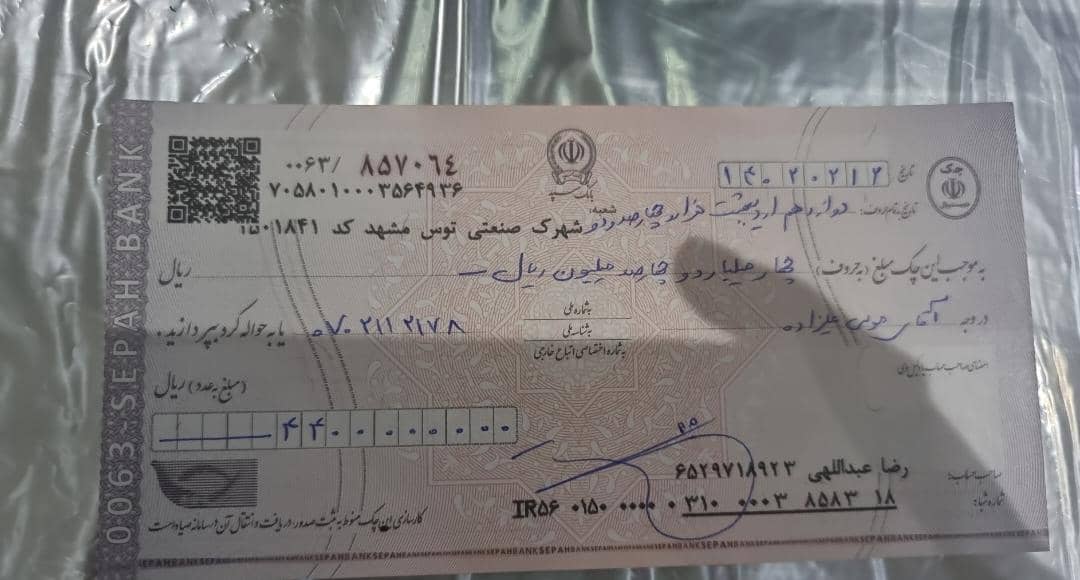 ۰۰۶۳/ ۸۵۷۰۶۴
۷۰۵۸۰۱۰۰۰۳۵۶۴۹۳۶
بانک سپه
چک
تاریخ
۱۴۰۲۰۲۱۲
تاریخ به تمام حروف: دوازدهم اردیبهشت هزار و چهارصد و دو
شعبه: شهرک صنعتی توس مشهد کد ۱۵۰۱۸۴۱
به موجب این چک مبلغ (به حروف) چهار میلیارد و چهارصد میلیون ریال ریال
در وجه آقای موسی علیزاده
به شماره ملی
به شناسه ملی
به شماره اختصاصی اتباع خارجی
۰۷۰۲۱۱۲۱۷۸ یا به حواله کرد بپردازید.
(مبلغ به عدد) ریال
۴۴۰۰۰۰۰۰۰۰
صاحب حساب: رضا عبداللهی ۶۵۲۹۷۱۸۹۲۳
شماره شبا: IR۵۶ ۰۱۵۰ ۰۰۰۰ ۰ ۳۱۰ ۰۰۰۳ ۸۵۸۳ ۱۸
کارسازی این چک منوط به ثبت صدور، دریافت و انتقال آن در سامانه صیاد است
0063-SEPAH.BANK
SEPAHBANKSEPAHBANKSEPAHBANKSEPAHBANK